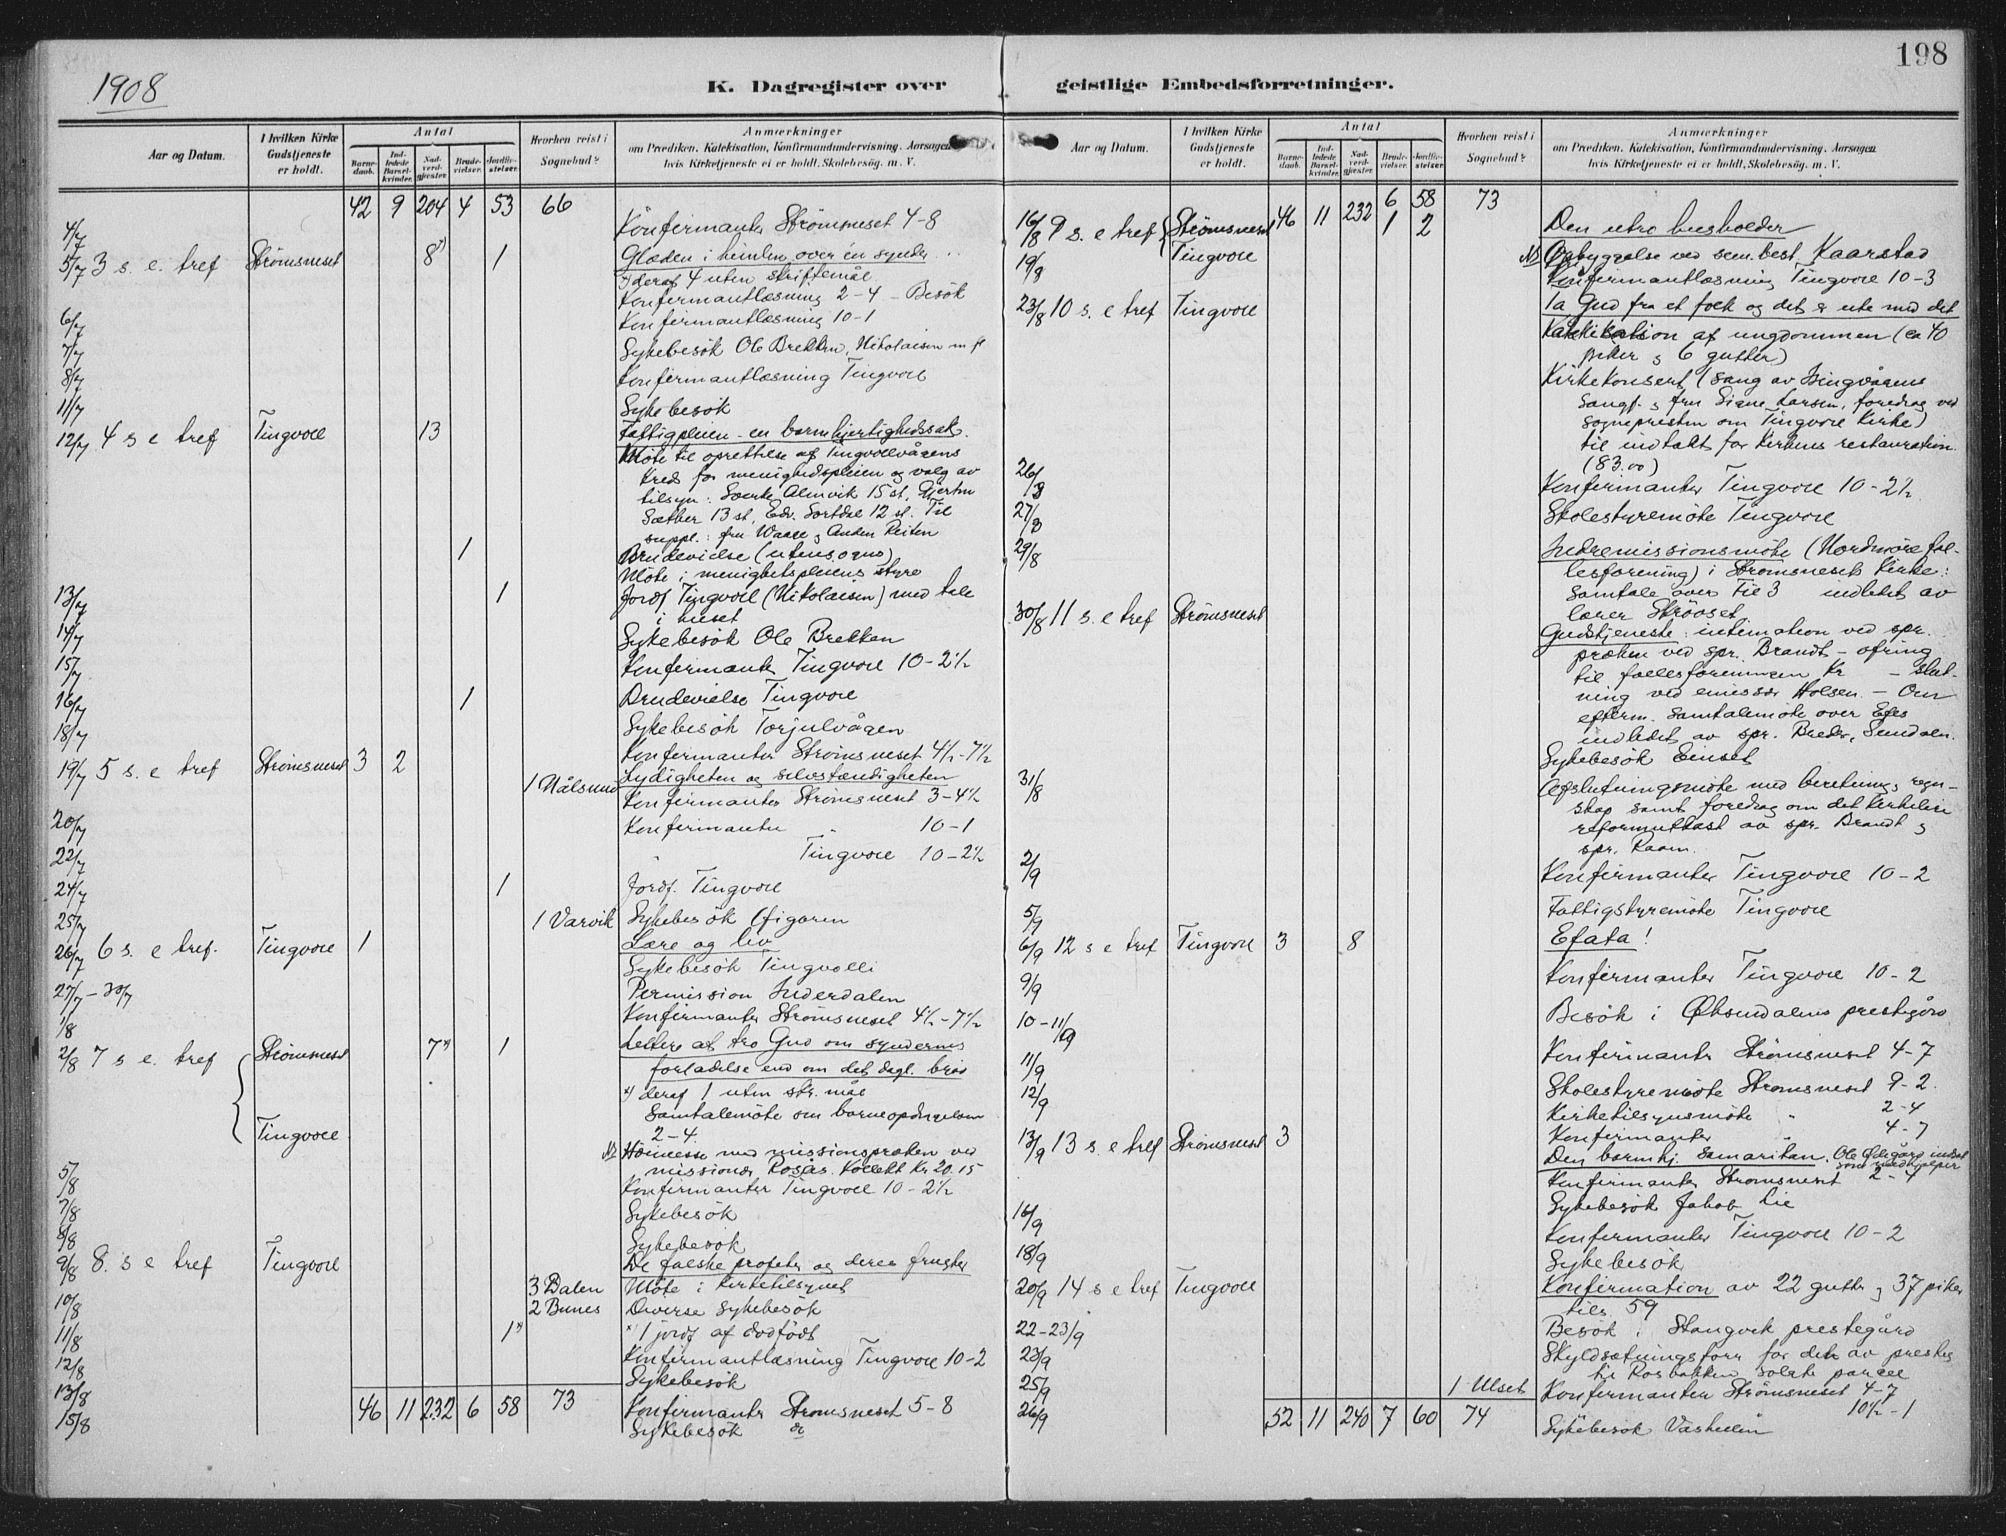 198
1908
K. Dagregister over
geistlige Embedsforretninger.
Aar og Datum.
I hvilken Kirke Gudstjeneste er holdt.
Antal
Barne-daab.
Ind-ledede Barsel-kvinder.
Nad-verd-gjæster.
Brude-vielser.
Jordfæ-stelser.
Hvorhen reist i Sognebud?
Anmærkninger
om Prædiken, Katekisation, Konfirmandundervisning. Aarsagen
hvis Kirketjeneste ei er holdt, Skolebesøg. m. V.
42 9 204 4 53 66
4/7 Konfirmanter Strömsneset 4-8
5/7 3 s. e. tref Strömsneset 8 x) 1 Glæden i himlen over én synder
x) deraf 4 uten skriftemål
Konfirmantlæsning 2-4 - Besök
6/7 Konfirmantlæsning 10-1
7/7 Sykebesök Ole Brekken, Nikolaisen m fl
8/7 Konfirmantlæsning Tingvoll
11/7 Sykebesök
12/7 4 s e tref Tingvoll 13 Fattigpleien - en barmhjertighedssak.
Möte til oprettelse af Tingvollvågens
Kreds for menighedspleien og valg av
tilsyn: Almvik 15 st, Gjertru
Sæther 13 st, Edv. 12 st. Til
suppl.: fru Waage og Anders Reiten
1 Brudevielse (utensogns)
Möte i menighetspleiens styre
13/7 1 Jordf. Tingvoll (Nikolaisen) med tale
i huset
14/7 Sykebesök Ole Brekken
15/7 Konfirmant. Tingvoll 10-2½
16/7 1 Brudevielse Tingvoll
18/7 Sykebesök Torjulvågen
Konfirmanter Strömsneset 4½-7½
19/7 5 s. e tref Strömsneset 3 2 Lydigheten og selvstændigheten
1 Nålsund Konfirmanter Strömsneset 3-4½
20/7 Konfirmanter " 10-1
22/7 " Tingvoll 10-2½
24/7 1 Jordf. Tingvoll
25/7 1 Varvik Sykebesök
26/7 6 s. e tref. Tingvoll 1 Lære og liv
Sykebesök Tingvoll
27/7-30/7 Permission Inderdalen
1/8 Konfirmanter Strömsneset 4½-7½
2/8 7 s e. tref Strömsneset 7 x) 1 Lettere at tro Gud om syndernes
forladelse end om det dagl. bröd
x) deraf 1 uten skr. mål
Samtalemöte om barneopdragelsen
2-4.
Tingvoll Höimesse med missionspræken ved
missionær Rosås. Kollekt Kr 20.15
5/8 Konfirmanter Tingvoll 10-2½
7/8 Sykebesök
8/8 Sykebesök
9/8 8. s e tref Tingvoll De falske profeter og deres frugter
3 Dalen Möte i Kirketilsynet
10/8 2 Bunes Diverse Sykebesök
11/8 1 x) x) 1 jordf af dödfödt
12/8 Konfirmantlæsning Tingvoll 10-2
13/8 Sykebesök
46 11 232 6 58 73
15/8 Konfirmanter Strömsneset 5-8
Sykebesök do
Aar og Datum.
I hvilken Kirke Gudstjeneste er holdt.
Antal
Barne-daab.
Ind-ledede Barsel-kvinder.
Nad-verd-gjæster.
Brude-vielser.
Jordfæ-stelser.
Hvorhen reist i Sognebud?
Anmærkninger
om Prædiken, Katekisation, Konfirmandundervisning. Aarsagen
hvis Kirketjeneste ei er holdt, Skolebesøg. m. V.
46 11 232 6 58 73
16/8 9 s. e tref Strömsneset 1 2 Den utro husholder
Tingvoll Opbyggelse ved sem.best. Kaarstad
19/8 Konfirmantlæsning Tingvoll 10-3
23/8 10 s. e tref Tingvoll Ta Gud fra et folk og det er ute med det
Katekisation af ungdommen (ca 40
piker og 6 gutter)
Kirkekonsert (sang av Tingvågens
Sangf. og fru Signe Larsen, foredrag ved
sognepresten om Tingvoll Kirke)
til indtækt for Kirkens restauration
(83.00)
26/8 Konfirmanter Tingvoll 10-2½
27/8 Skolestyremöte Tingvoll
29/8 Indremissionsmöte (Nordmöre fæl-
lesforening) i Strömsneset Kirke:
Samtale over Fil 3 indledet av
lærer
30/8 11 s. e tref Strömsneset Gudstjeneste: intimation ved spr.
præken ved spr. Brandt - ofring
til fællesforeningen Kr - slut-
ning ved emissær Holsen. - Om
efterm. samtalemöte over Efes
indledet av spr. Sundalen.
Sykebesök Einset
31/8 Afslutningsmöte med beretning, regn-
skap samt foredrag om det kirkelige
reformutkast av spr. Brandt og
spr.
2/9 Konfirmanter Tingvoll 10-2
5/9 Fattigstyremöte Tingvoll
6/9 12 s e tref Tingvoll 3 8 Efata!
9/9 Konfirmanter Tingvoll 10-2
10-11/9 Besök i Øksendalens prestegård
11/9 Konfirmanter Strömsneset 4-7
12/9 Skolestyremöte Strömsneset 9-2.
Kirketilsynsmöte " 2-4
Konfirmanter " 4-7
13/9 13 s e tref Strömsneset 3 Den barmhj. samaritan. Ole Ödegård indsat
som medhjælper
Konfirmanter Strömsneset 2-4
16/9 Sykebesök Jakob Lie
Konfirmanter Tingvoll 10-2
18/9 Sykebesök
20/9 14 s e tref Tingvoll Konfirmation av 22 gutter og 37 piker
tils. 59
22-23/9 Besök i Stangvik prestegård
23/9 Skyldsætningsforr. for det av presteg.
til Rosbakken solgte parcel
25/9 1 Ulset Konfirmanter Strömsneset 4-7
10½-1
26/9 52 11 240 7 60 74 Sykebesök